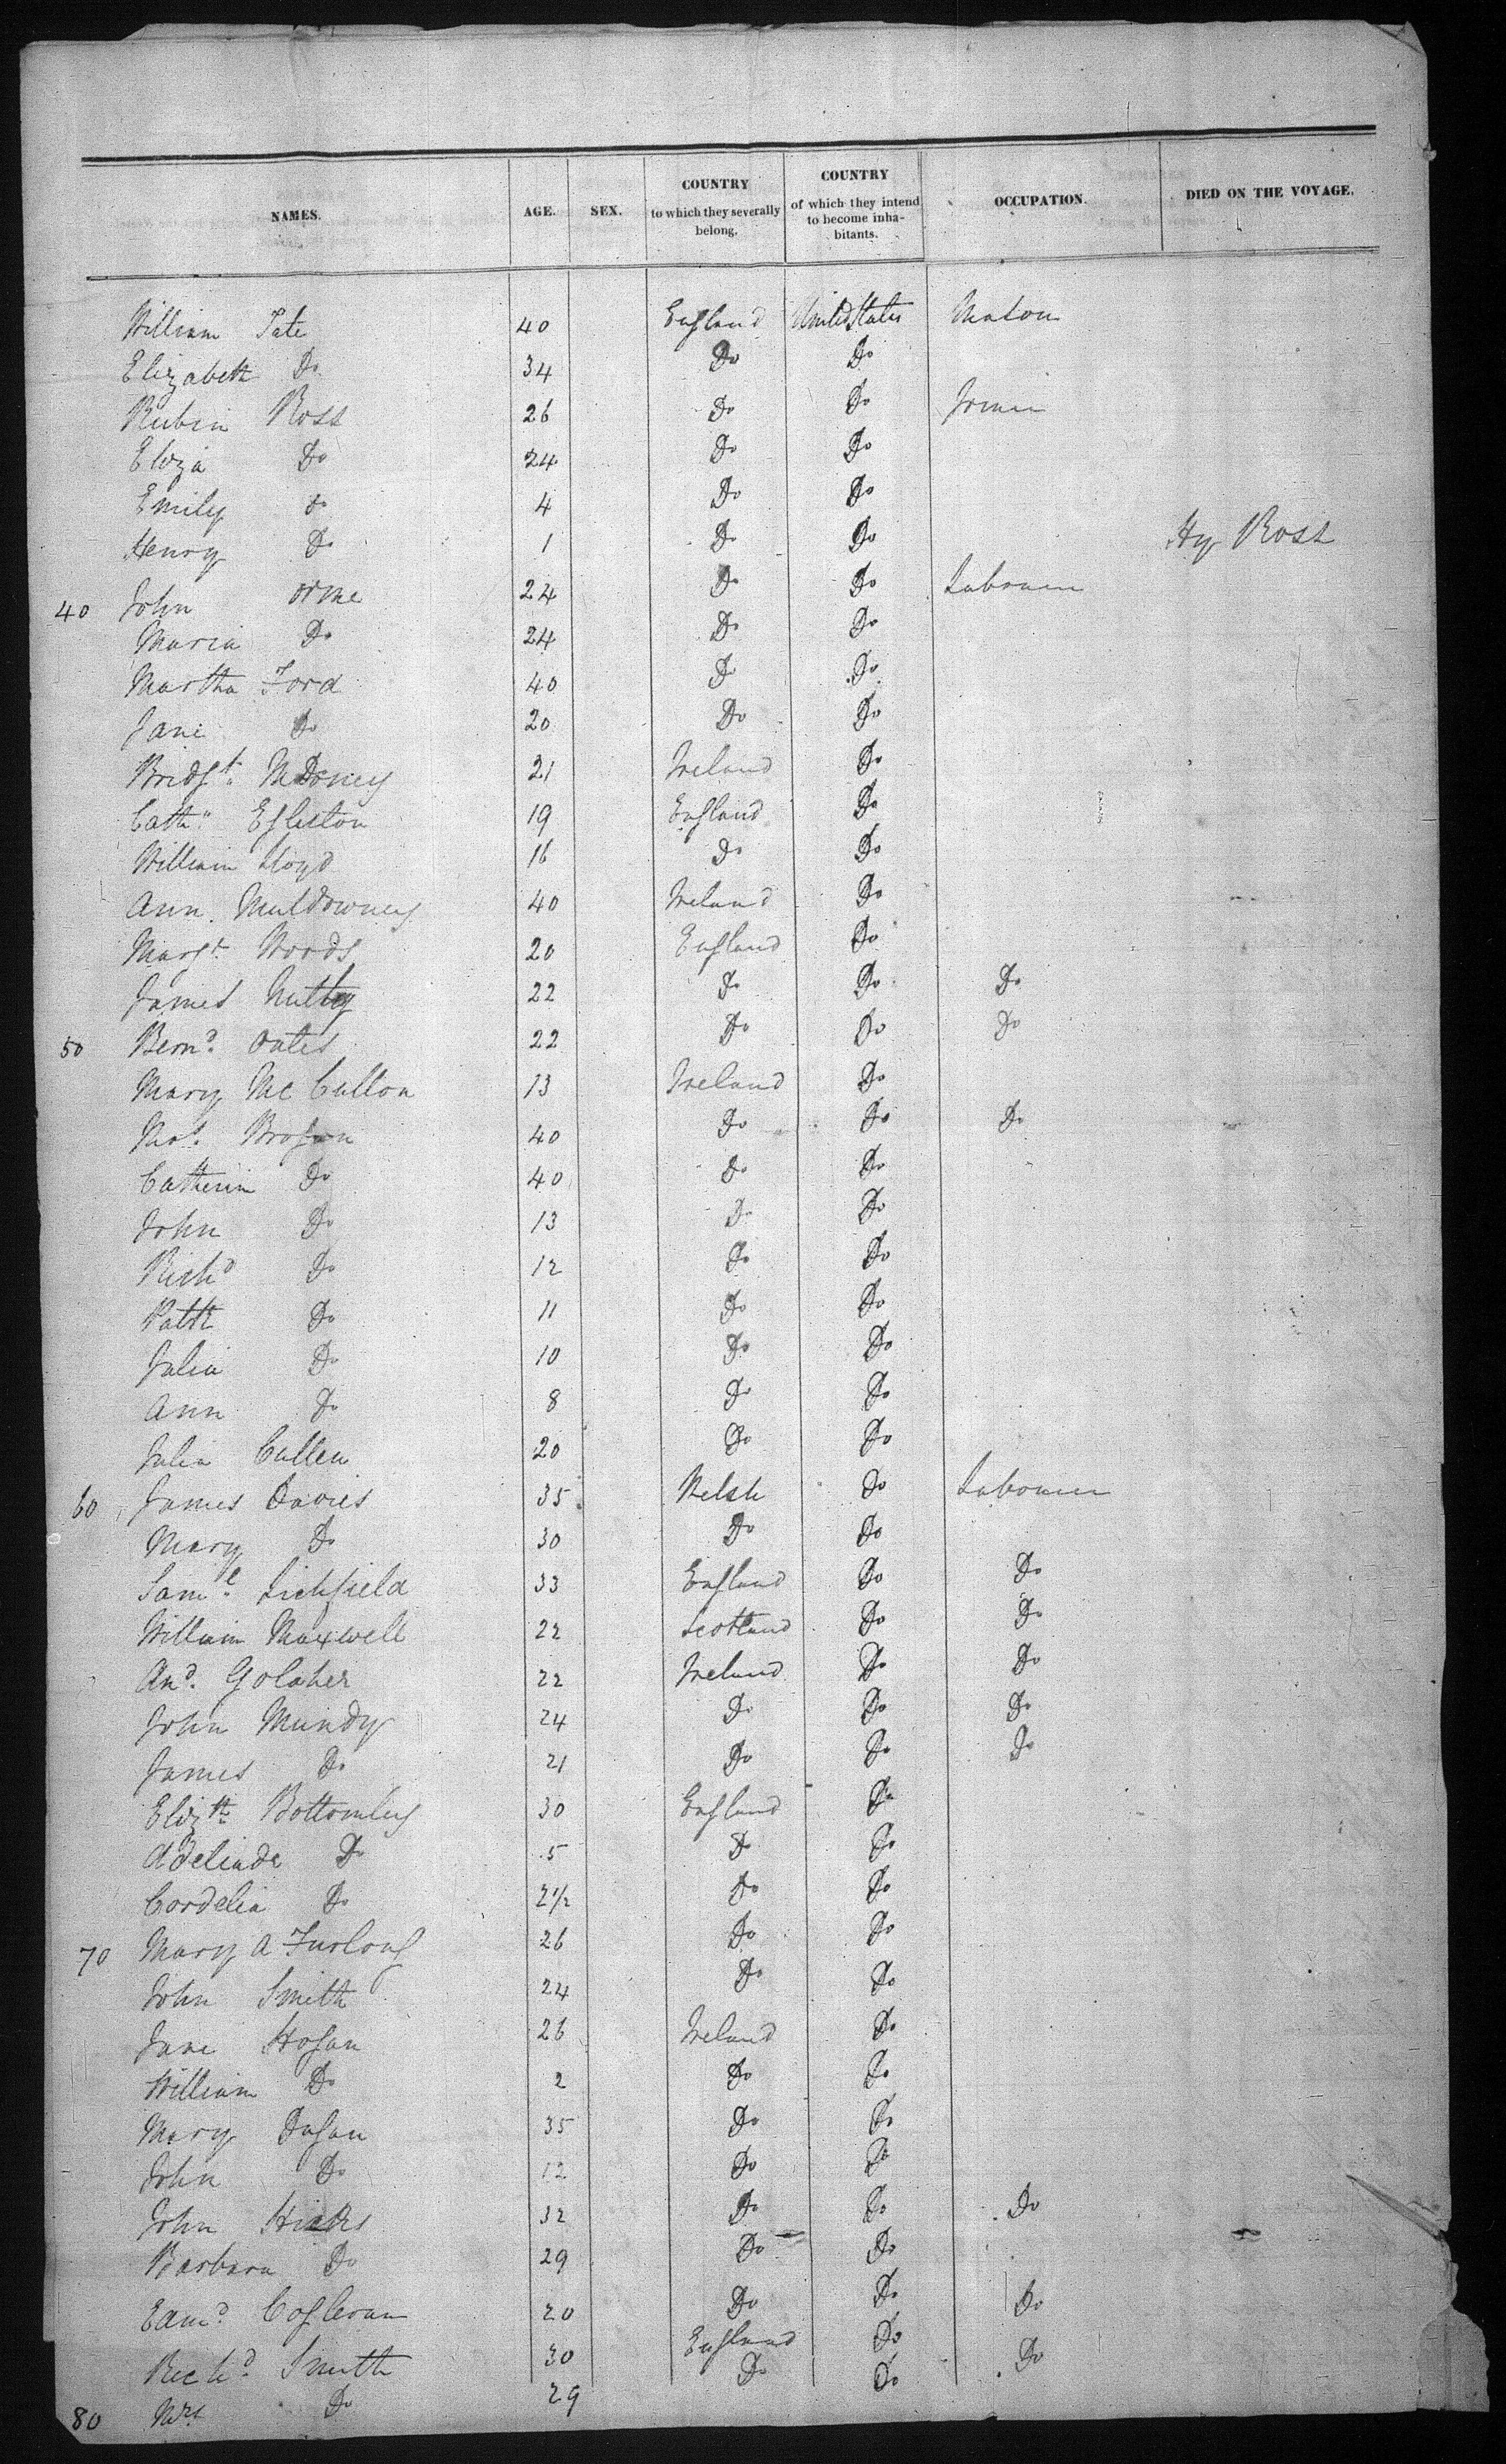 NAMES. AGE. SEX. COUNTRY to which they severally belong. COUNTRY of which they intend to become inhabitants. OCCUPATION. DIED ON THE VOYAGE.
William Tate 40 England United States Mason
Elizabeth Do 34 Do Do
Rubin Ross 26 Do Do
Eliza Do 24 Do Do
Emily do 4 Do Do
Henry Do 1 Do Do Hy Ross
40 John orme 24 Do Do Labourer
Maria Do 24 Do Do
Martha Ford 40 Do Do
Jane Do 20 Do Do
Bridgt 21 Ireland Do
Cathn Egleston 19 England Do
William Lloyd 16 Do Do
Ann Muldowney 40 Ireland Do
Margt Woods 20 England Do
James 22 Do Do Do
50 Bernd Oates 22 Do Do Do
Mary Mc Cullon 13 Ireland Do
Brogan 40 Do Do Do
Catherin Do 40 Do Do
John Do 13 Do Do
Richd Do 12 Do Do
Patk Do 11 Do Do
Julia Do 10 Do Do
Ann Do 8 Do Do
Julia Cullen 20 Do Do
60 James Davies 35 Welsh Do Labourer
Mary Do 30 Do Do
Saml Lichfield 33 England Do Do
William Maxwell 22 Scotland Do Do
And. Golaher 22 Ireland Do Do
John Mundy 24 Do Do Do
James Do 21 Do Do Do
Elizth Bottomley 30 England Do
Adelinde Do 5 Do Do
Cordelia Do 2 1/2 Do Do
70 Mary A Furlong 26 Do Do
John Smith 24 Do Do
Jane Hogan 26 Ireland Do
William Do 2 Do Do
Mary Dugan 35 Do Do
John Do 12 Do Do
John Hicks 32 Do Do Do
Barbara Do 29 Do Do
Edmd Cogleran 20 Do Do Do
Richd Smith 30 England Do Do
80 Mrs Do 29 Do Do